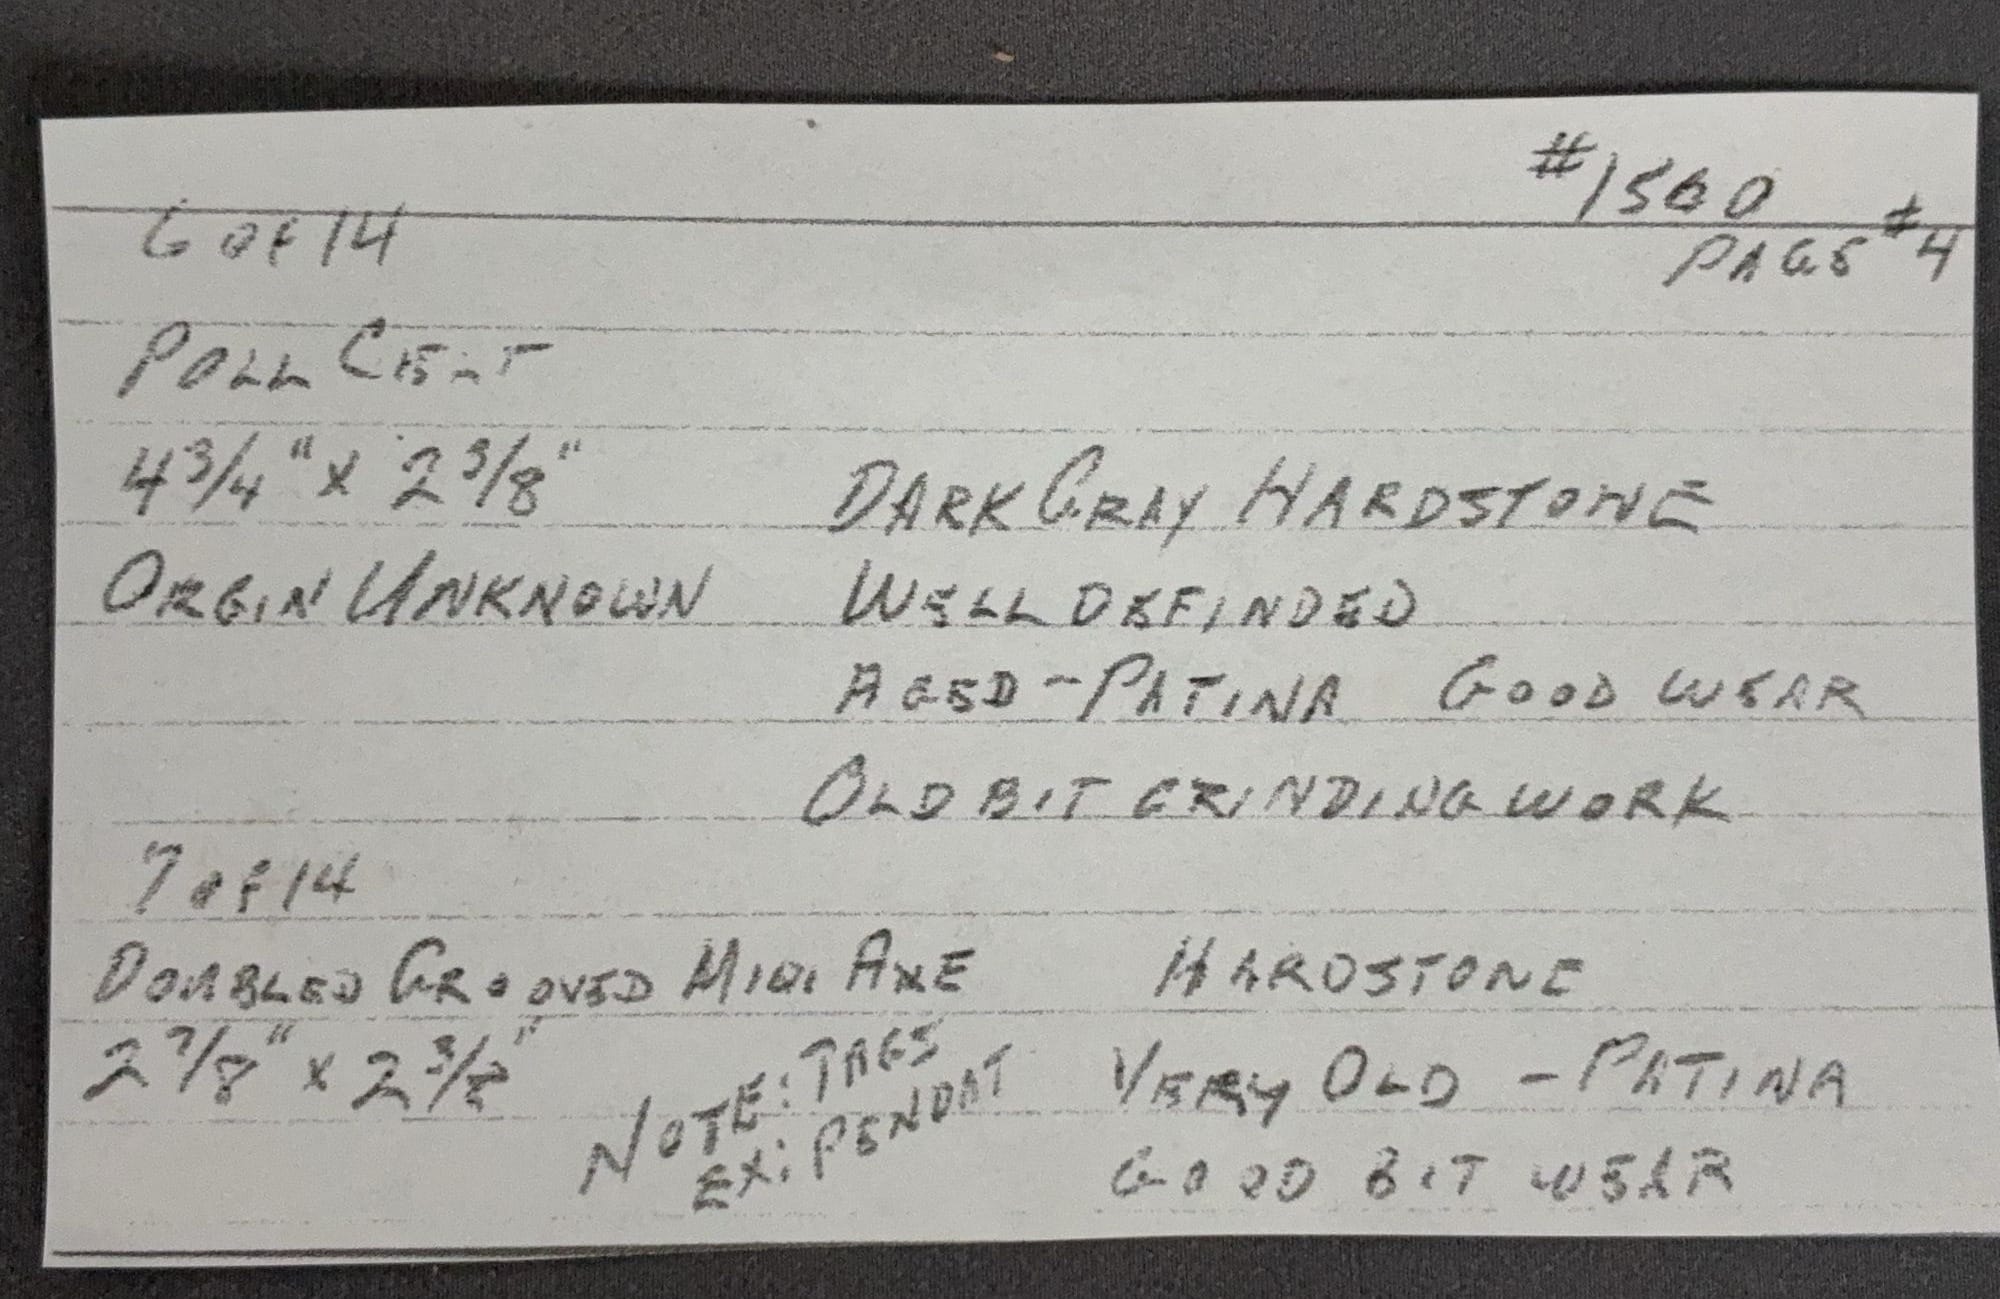 #1560
PAGE #4
6 OF 14
POLL CELT
4 3/4" X 2 3/8"
DARK GRAY HARDSTONE
ORGIN UNKNOWN
WELL DEFINDED
AGED - PATINA GOOD WEAR
OLD BIT GRINDING WORK
7 OF 14
DOUBLED GROOVED MIDI AXE
HARDSTONE
2 7/8" X 2 3/8"
NOTE: TAGS
EX: PENDAT
VERY OLD - PATINA
GOOD BIT WEAR